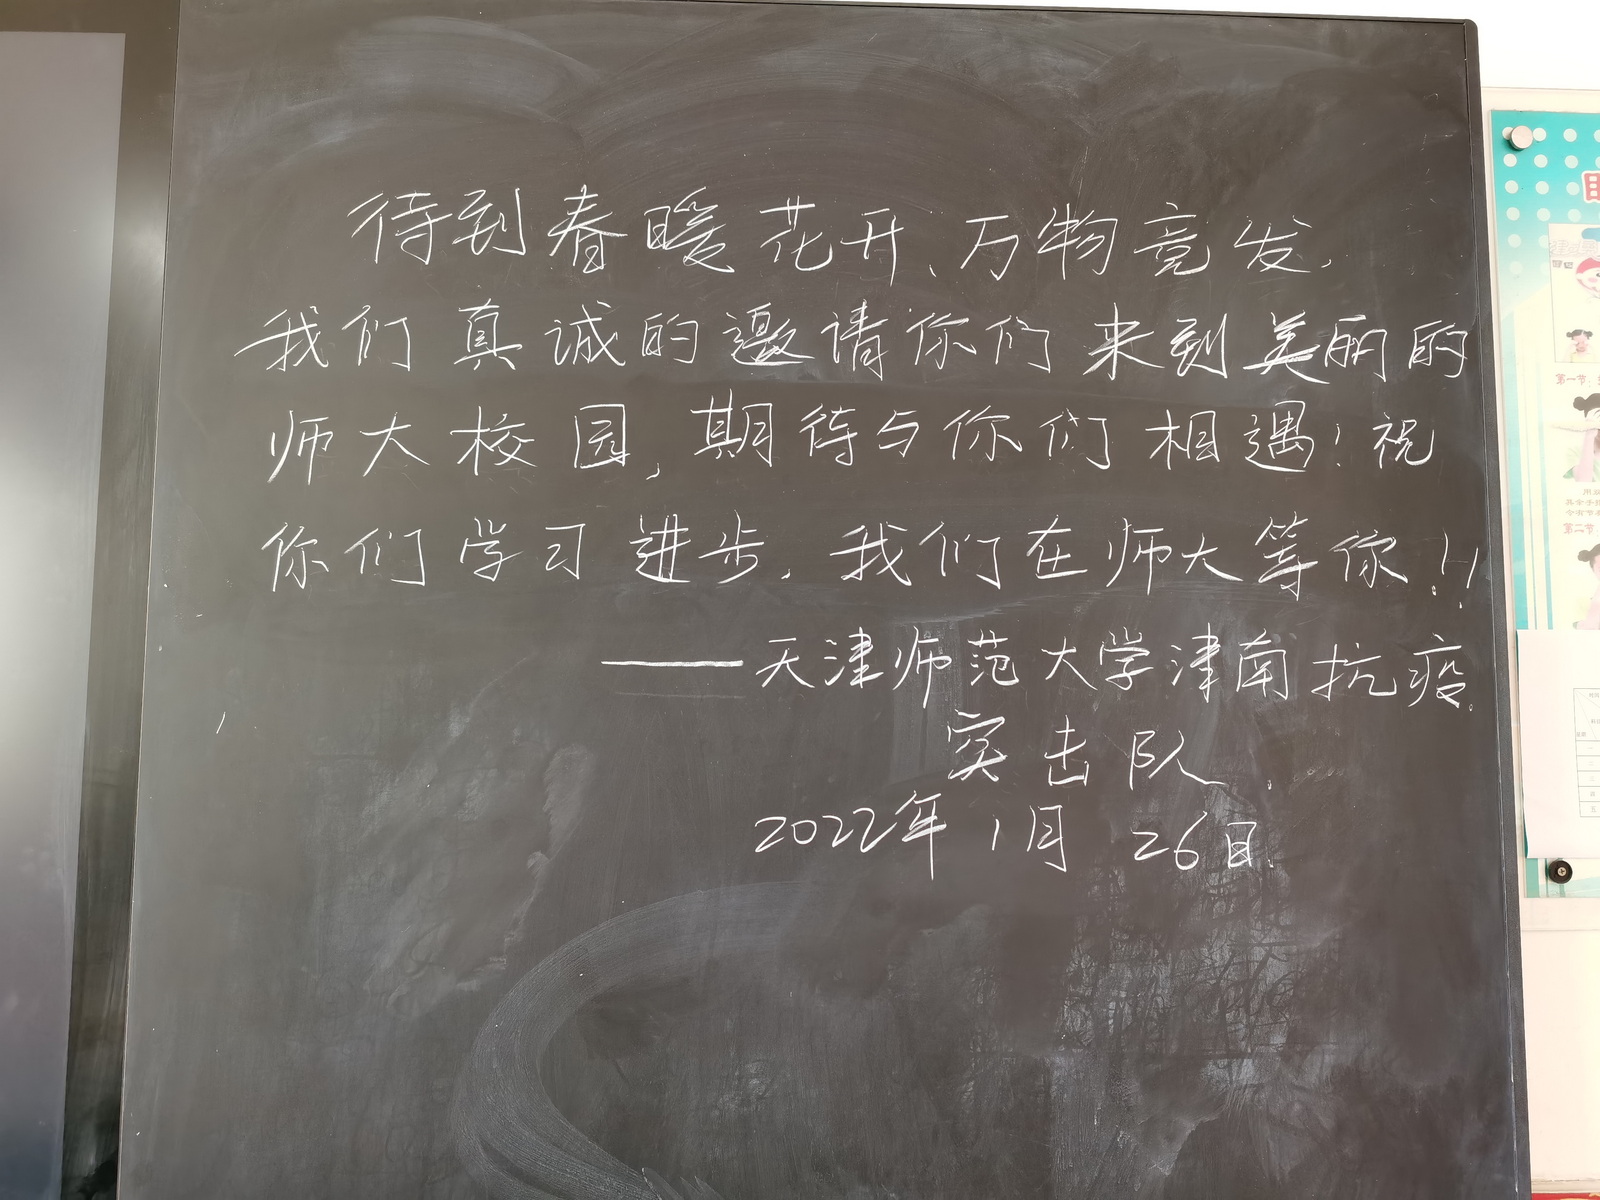 待到春暖花开、万物竟发,
我们真诚的邀请你们来到美丽的
师大校园,期待与你们相遇!祝
你们学习进步.我们在师大等你!!
——天津师范大学津南抗疫
突击队.
2022年1月26日.
第一节:
第二节